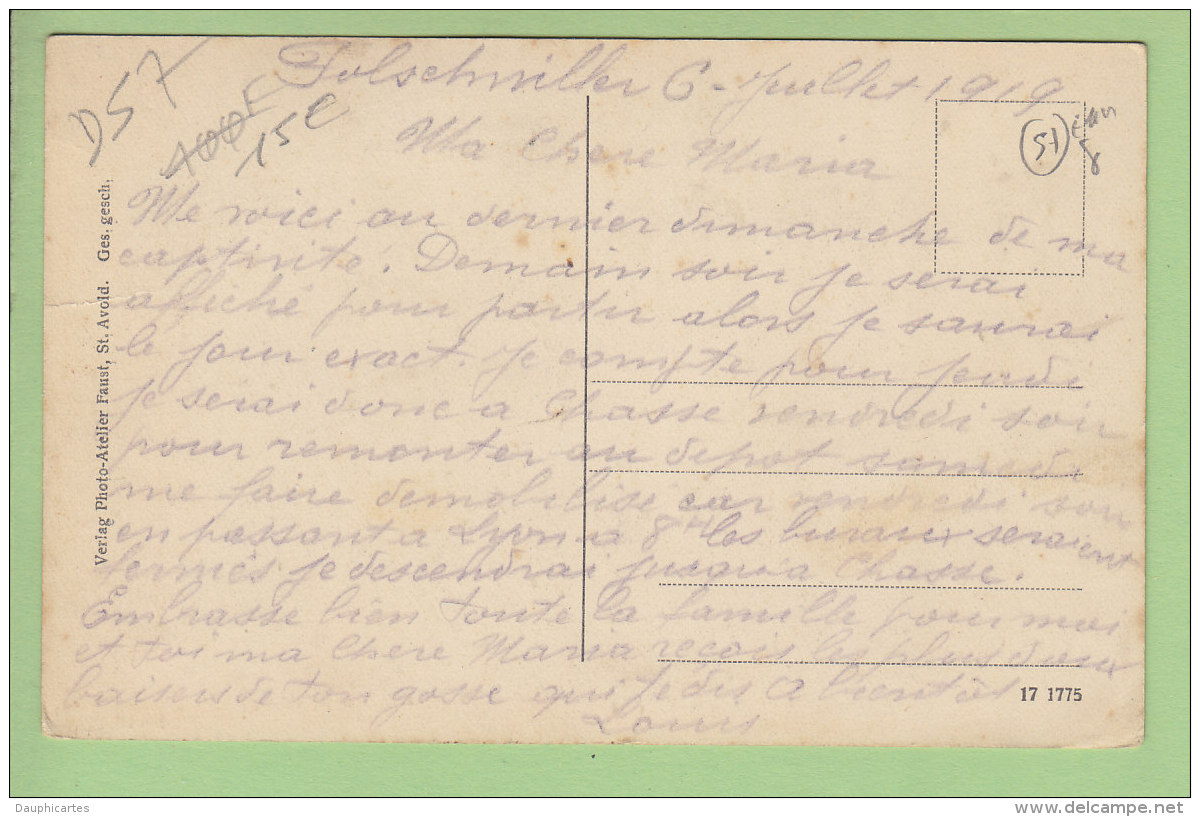 D57
100F
15€
57
Folschviller 6 - Juillet 1919
Ma Chere Maria
Me voici au dernier dimanche de ma
captivite. Demain soir je serai
affiché pour partir alors je saurai
le jour exact. Je compte pour jeudi
je serai donc a Chasse vendredi soir
pour remonter au depot samedi
me faire demobilisé car vendredi soir
en passant a Lyon a 8H les buraux seraient
fermés je descendrai jusqu'a Chasse.
Embrasse bien toute la famille pour moi
et toi ma Chere Maria reçois les plus doux
baisers de ton gosse qui te dis a bientôt
Louis
Verlag Photo-Atelier Faust, St. Avold. Ges. gesch.
17 1775
Dauphicartes
www.delcampe.net